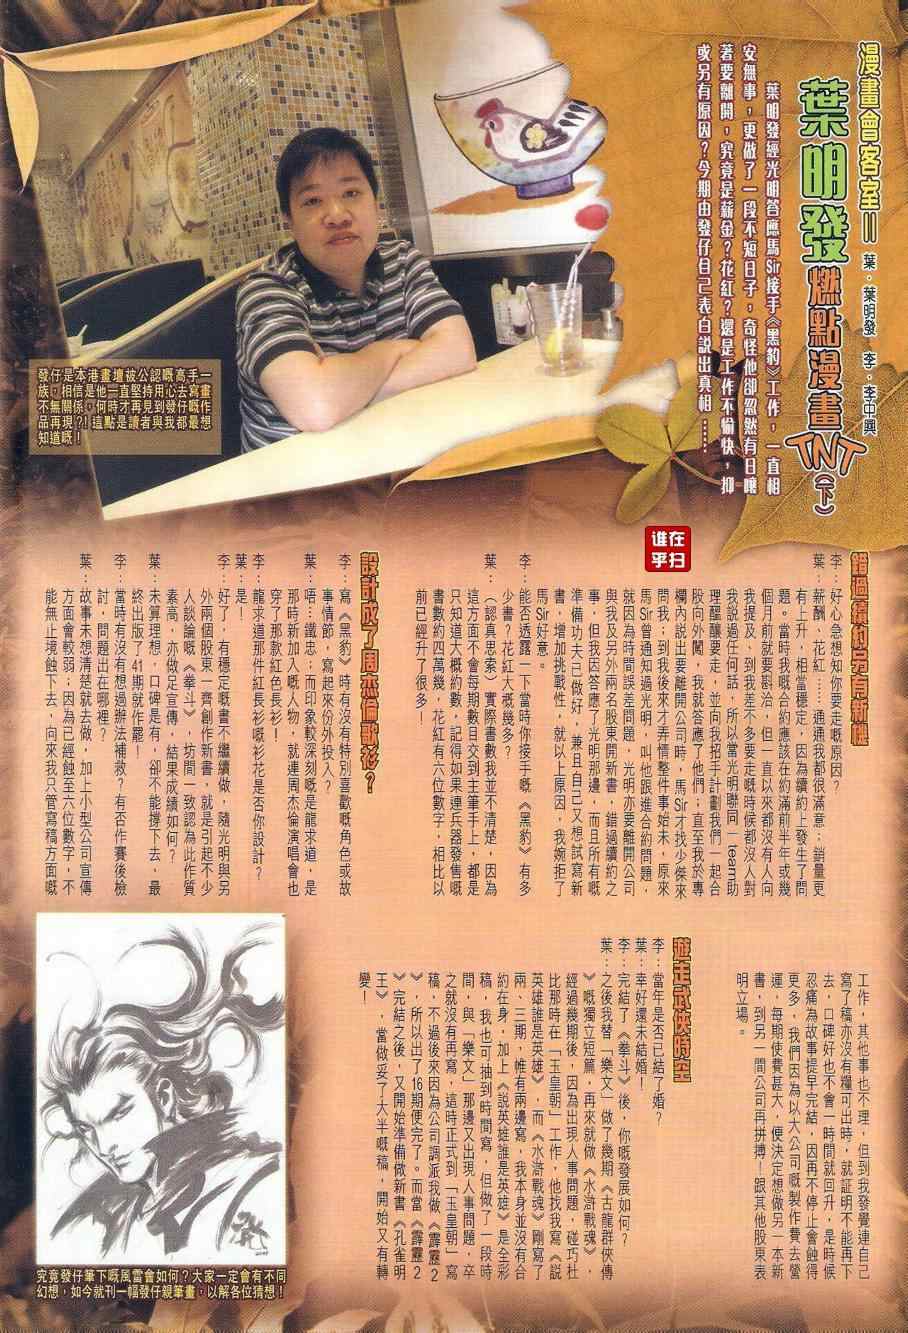 漫畫會客室II
葉．葉明發　李．李中興
葉明發燃點漫畫TNT(下)
葉明發經光明答應馬Sir接手《黑豹》工作，一直相
安無事，更做了一段不短日子，奇怪他卻忽然有日嚷
著要離開，究竟是薪金？花紅？還是工作不愉快，抑
或另有原因？今期由發仔自己表白說出真相……
發仔是本港畫壇被公認嘅高手一
族，相信是他一直堅持用心去寫畫
不無關係，何時才再見到發仔嘅作
品再現？！這點是讀者與我都最想
知道嘅！
谁在
乎扫
錯過續約另有新機
李：好心急想知你要走嘅原因？
葉：薪酬、花紅……通通我都很滿意；銷量更
有上升，相當穩定，因為續約上發生了問
題。當時我嘅合約應該在約滿前半年或幾
個月前就要斟洽，但一直以來都沒有人向
我提及，到我差不多要走嘅時候都沒人對
我說過任何話，所以當光明聯同一team助
理醞釀要走，並向我招手計劃我們一起合
股向外闖，我就答應了他們；直至我於專
欄內說出要離開公司時，馬Sir才找少傑來
問我；到我後來才弄情整件事始末，原來
馬Sir曾通知過光明，叫他跟進合約問題，
就因為時間誤差問題，光明亦要離開公司
與我及另外兩名股東開新書，錯過續約之
事，但我因答應了光明那邊，而且所有嘅
準備功夫已做好，兼且自己又想試寫新
書，增加挑戰性，就以上原因，我婉拒了
馬Sir好意。
李：能否透露一下當時你接手嘅《黑豹》有多
少書？花紅大概幾多？
葉：（認真思索）實際書數我並不清楚，因為
這方面不會每期數目交到主筆手上，都是
只知道大概約數，記得如果連兵器發售嘅
書數約四萬幾，花紅有六位數字，相比以
前已經升了很多！
設計成了周杰倫歌衫？
李：寫《黑豹》時有沒有特別喜歡嘅角色或故
事情節，寫起來份外投入？
葉：唔：鐵忠；而印象較深刻嘅是龍求道，是
那時新加入嘅人物，就連周杰倫演唱會也
穿了那款紅色長衫！
李：龍求道那件紅長衫嘅衫花是否你設計？
葉：是！
李：好了，有穩定嘅書不繼續做，隨光明與另
外兩個股東一齊創作新書，就是引起不少
人談論嘅《拳斗》，坊間一致認為此作質
素高，亦做足宣傳，結果成績如何？
葉：未算理想，口碑是有，卻不能撐下去，最
終出版了41期就作罷！
李：當時有沒有想過辦法補救？有否作賽後檢
討，問題出在哪裡？
葉：故事未想清楚就去做，加上小型公司宣傳
方面會較弱；因為已經蝕至六位數字，不
能無止境蝕下去，向來我只管寫稿方面嘅
工作，其他事也不理，但到我發覺連自己
寫了稿亦沒有糧可出時，就証明不能再下
去，口碑好也不會一時間就回升，是時候
忍痛為故事提早完結，因再不停止會蝕得
更多，我們因為以大公司嘅製作費去營
運，每期使費甚大，便決定想做另一本新
書，到另一間公司再拼搏！跟其他股東表
明立場。
遊走武俠時空
李：當年是否已結了婚？
葉：幸好還未結婚！
李：完結了《拳斗》後，你嘅發展如何？
葉：之後我替「樂文」做了幾期《古龍群俠傳
》嘅獨立短篇，再來就做《水滸戰魂》，
經過幾期後，因為出現人事問題，碰巧杜
比那時在「玉皇朝」工作，他找我寫《說
英雄誰是英雄》，而《水滸戰魂》剛寫了
兩、三期，惟有兩邊寫，我本身並沒有合
約在身，加上《說英雄誰是英雄》是全彩
稿，我也可抽到時間寫，但做了一段時
間，與「樂文」那邊又出現人事問題，卒
之就沒有再寫，這時正式到「玉皇朝」寫
稿，不過後來因為公司調派我做《霹靂2
》，所以出了16期便完了。而當《霹靂2
》完結之後，又開始準備做新書《孔雀明
王》，當做妥了大半嘅稿，開始又有轉
變！
究竟發仔筆下嘅風雷會如何？大家一定會有不同
幻想，如今就刊一幅發仔親筆畫，以解各位猜想！